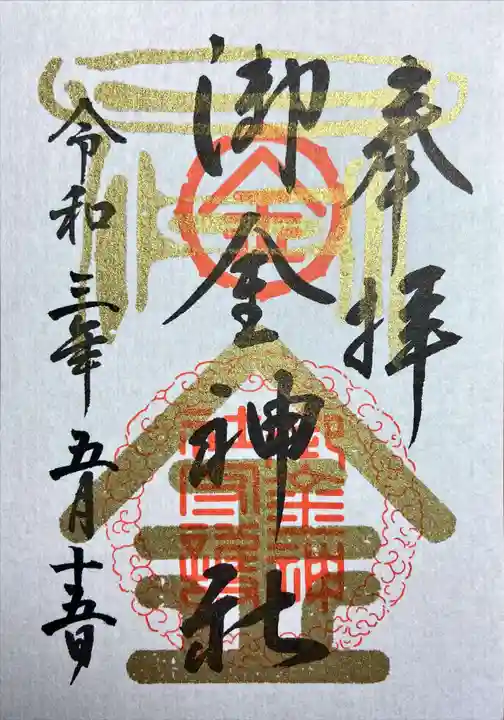 奉拝
御金神社
金
令和三年五月十五日